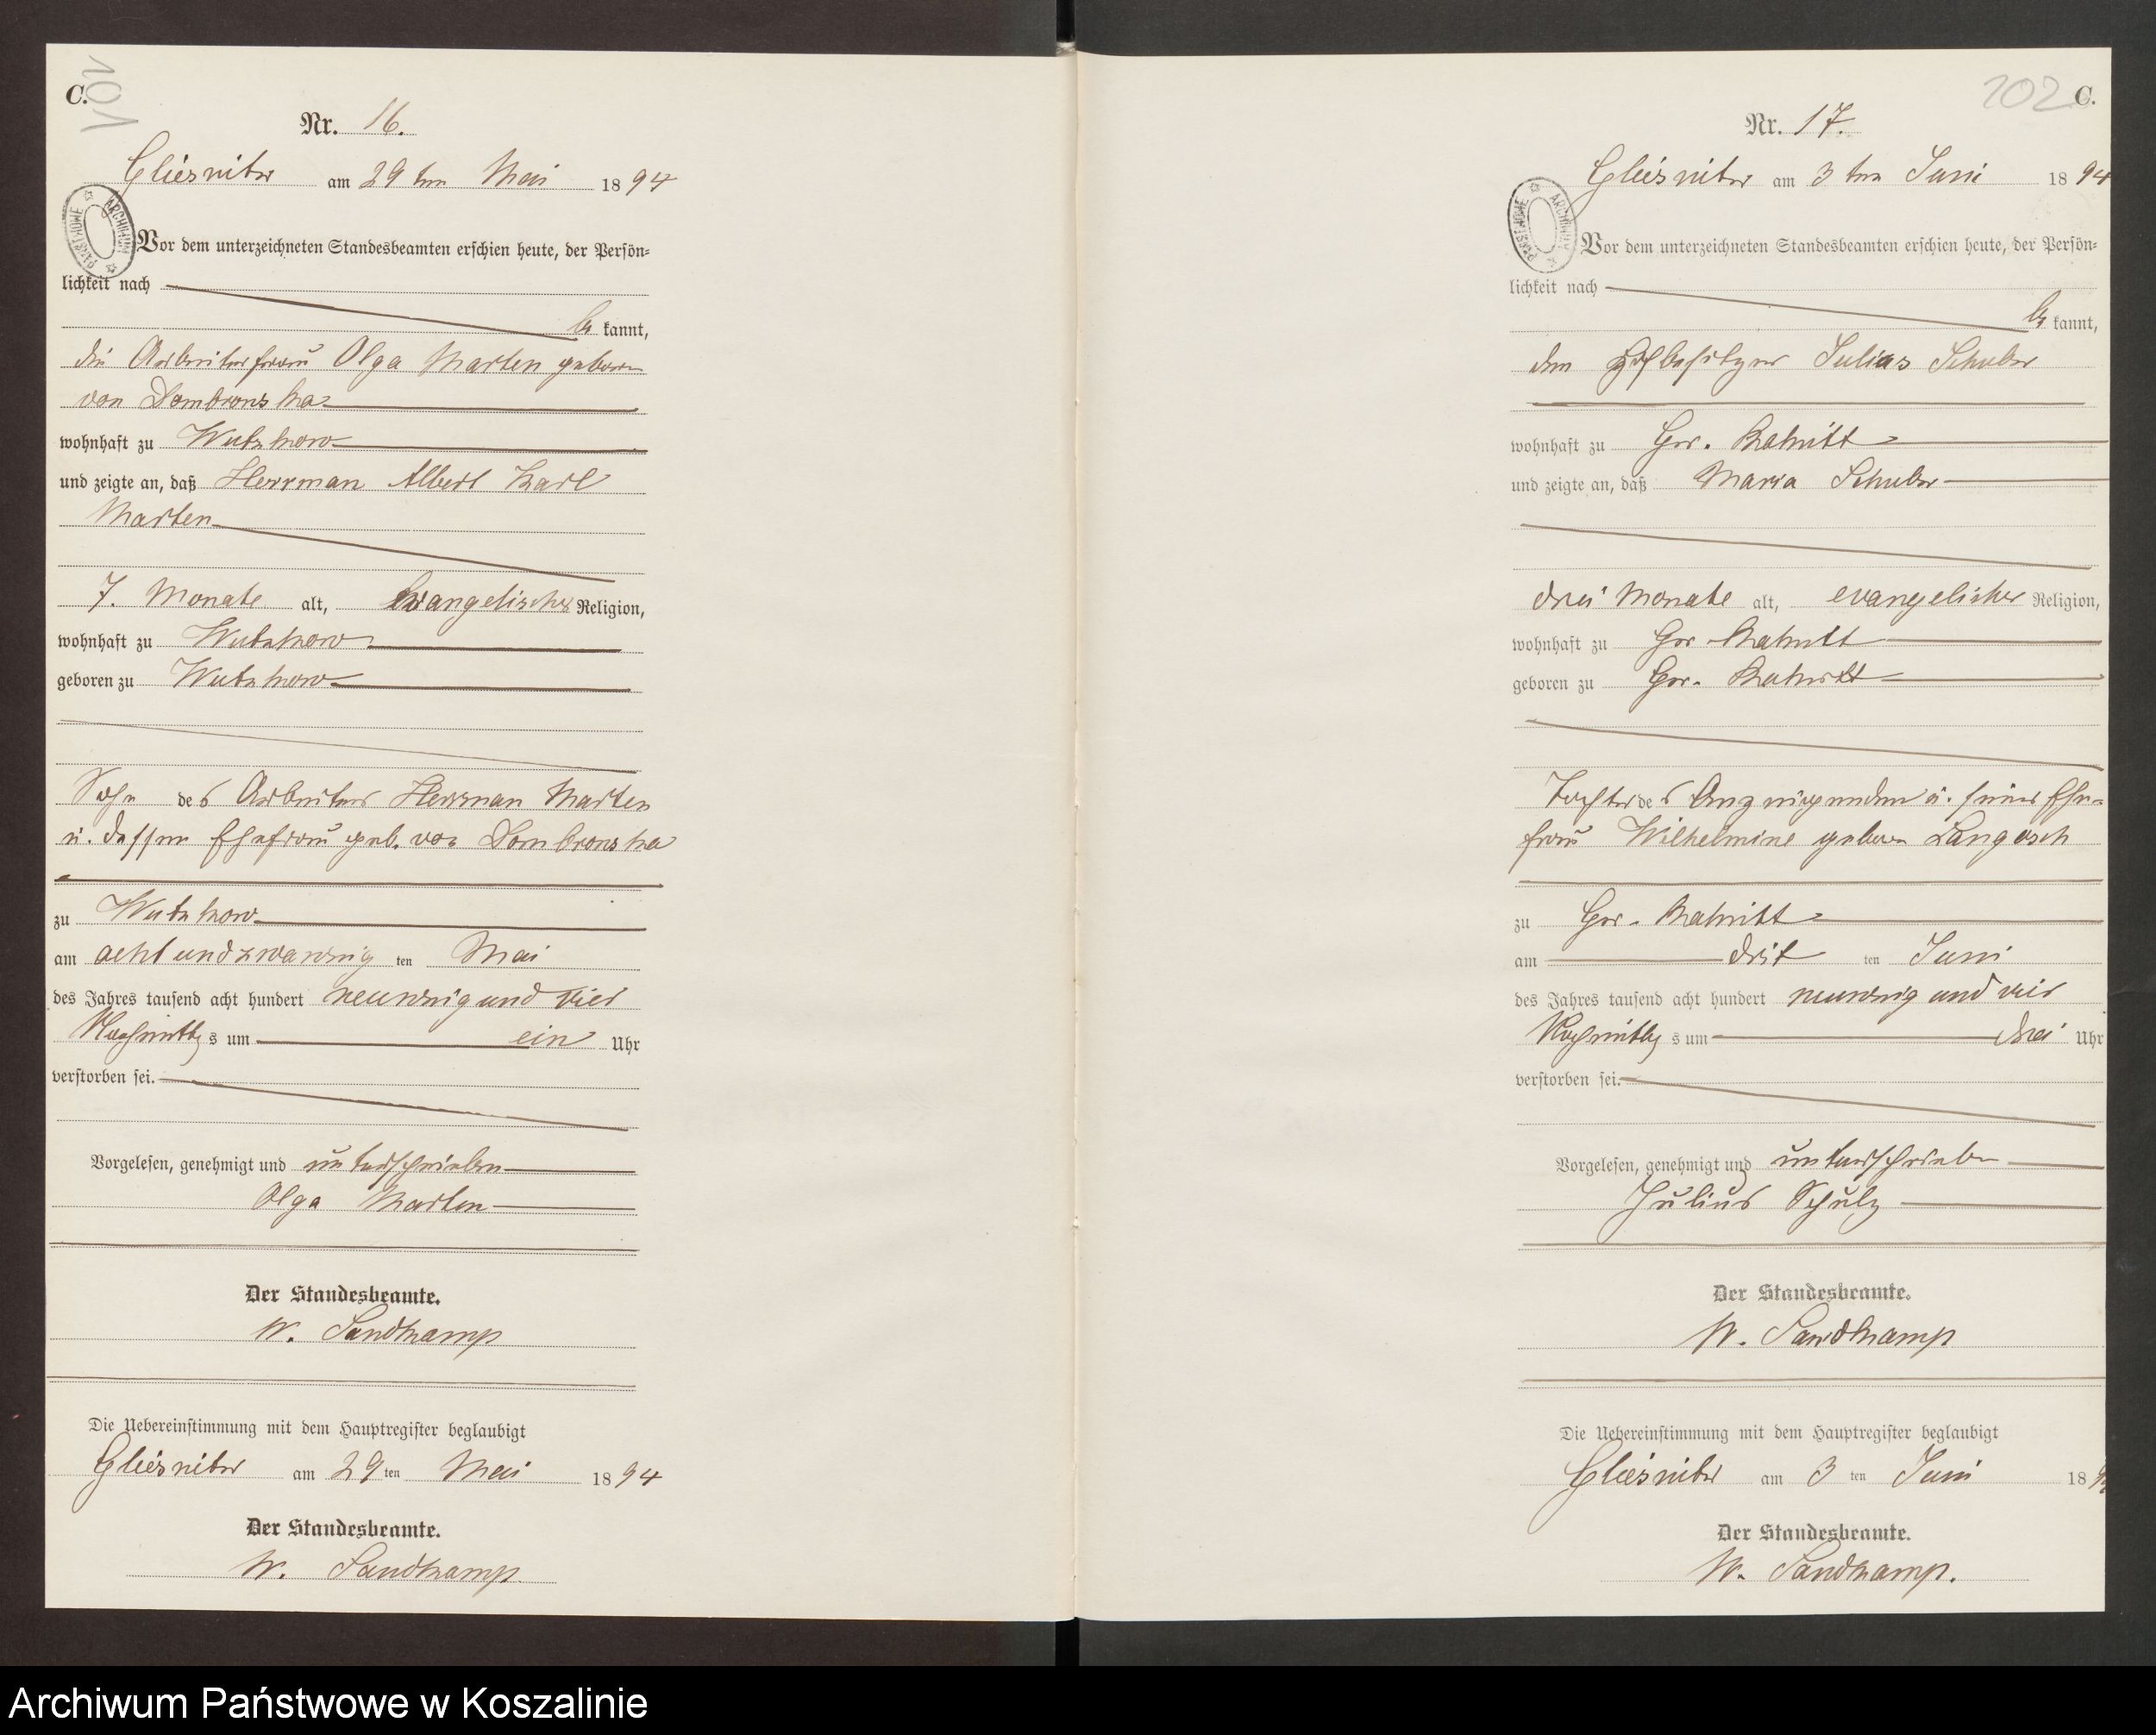 C.
101
Nr. 16.
Gliesnitz am 29ten Mai 1894
ARCHIWUM PAŃSTWOWE
Vor dem unterzeichneten Standesbeamten erschien heute, der Persön-
lichkeit nach
be kannt,
die Arbeiterfrau Olga Marten geborn
von Dombronska
wohnhaft zu Wutzkow
und zeigte an, daß Herrman Albert Karl
Marten
7. Monate alt, Evangelischer Religion,
wohnhaft zu Wutzkow
geboren zu Wutzkow
Sohn des Arbeiters Herrman Marten
u. dessen Ehefrau geb. von Dombronska
zu Wutzkow
am acht und zwanzig ten Mai
des Jahres tausend acht hundert neunzig und vier
Nachmittags um ein Uhr
verstorben sei.
Vorgelesen, genehmigt und unterschrieben
Olga Marten
Der Standesbeamte.
W. Sandkamp
Die Uebereinstimmung mit dem Hauptregister beglaubigt
Gliesnitz am 29ten Mai 1894
Der Standesbeamte.
W. Sandkamp.
102 C.
Nr. 17.
Gliesnitz am 3ten Juni 1894
ARCHIWUM PAŃSTWOWE
Vor dem unterzeichneten Standesbeamten erschien heute, der Persön-
lichkeit nach
be kannt,
den Hofbesitzer Julius
wohnhaft zu Gr. Rakitt
und zeigte an, daß Maria
drei Monate alt, evangelischer Religion,
wohnhaft zu Gr. Rakitt
geboren zu Gr. Rakitt
Tochter des Anzeigenden u. seiner Ehe-
frau Wilhelmine geborn Langosch
zu Gr. Rakitt
am drit ten Juni
des Jahres tausend acht hundert neunzig und vier
Nachmittags um drei Uhr
verstorben sei.
Vorgelesen, genehmigt und unterschrieben
Julius Schulz
Der Standesbeamte.
W. Sandkamp
Die Uebereinstimmung mit dem Hauptregister beglaubigt
Gliesnitz am 3ten Juni 189
Der Standesbeamte.
W. Sandkamp.
Archiwum Państwowe w Koszalinie